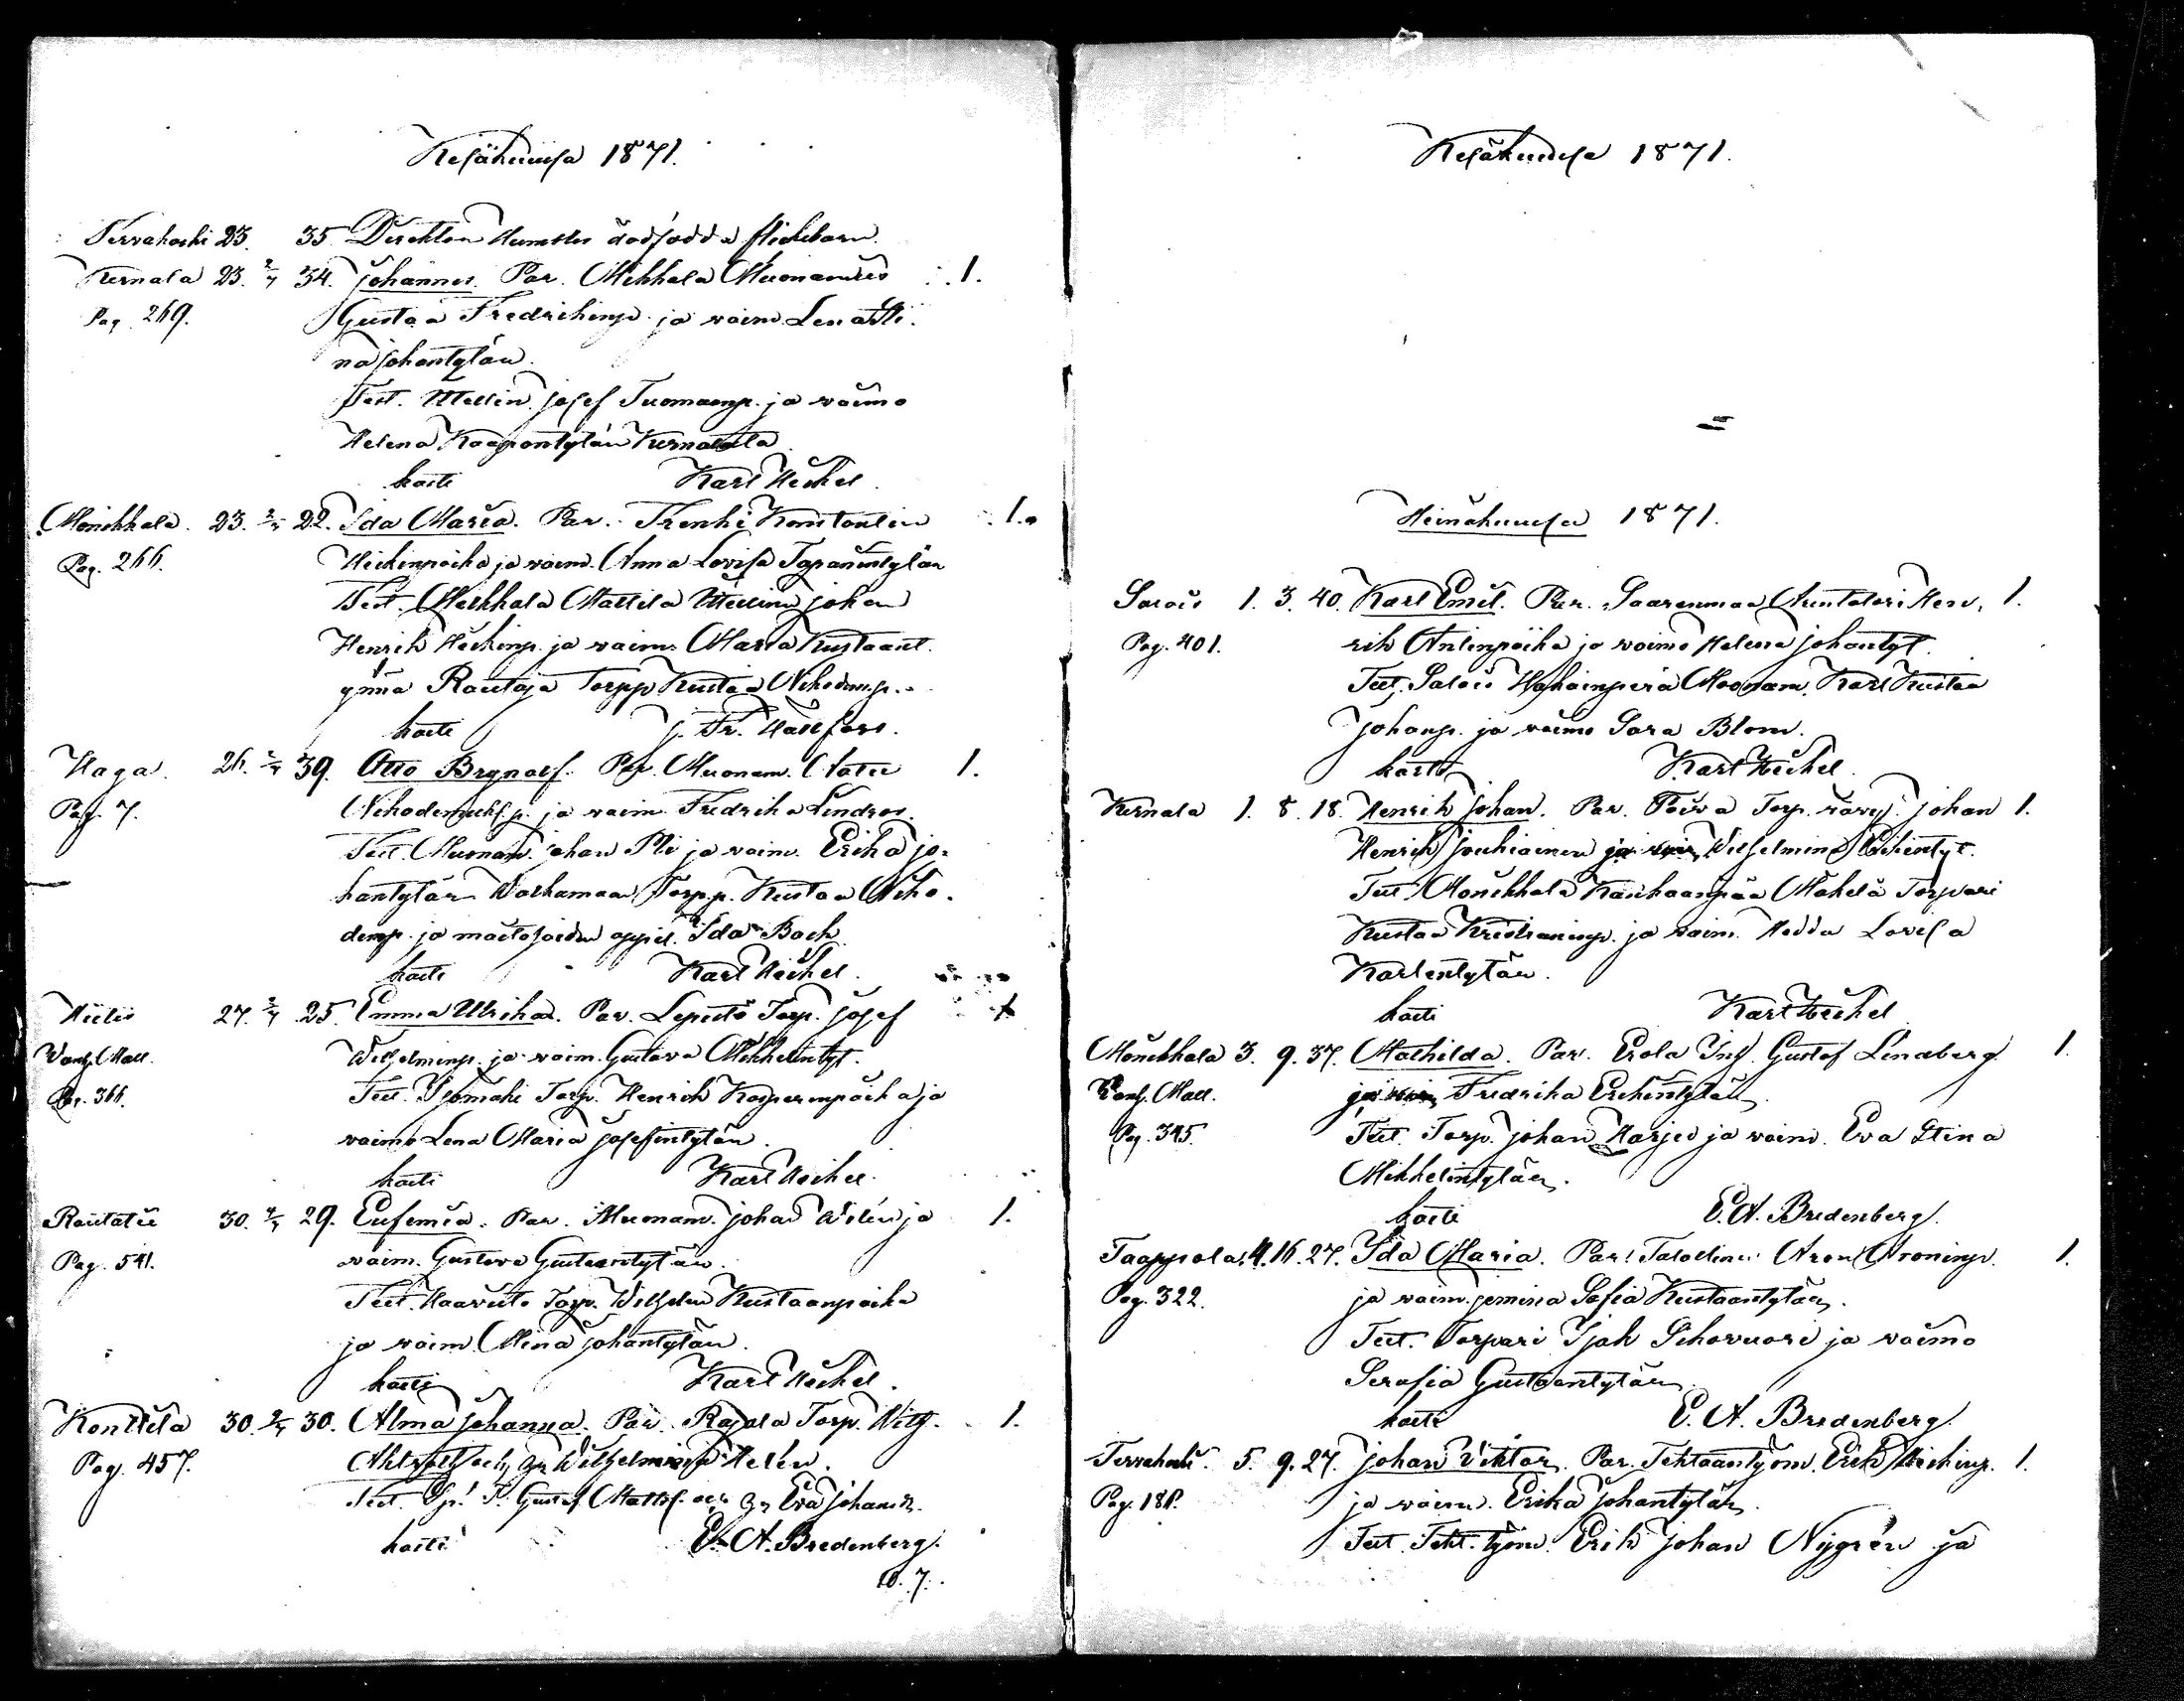 Kesäkuussa 1871.
Tervakoski 23. 35 Direktor Humbles dödfödda flickebarn.
Kernala 23. 2/7 34. Johannes. Par. Mikkala Muonamies 1.
Pag. 269. Gustaa Fredrikinp. ja vaim. Lena Sti-
na Johantytär.
Test. Itellin. Josef Tuomaanp. ja vaimo
Helena Kaapontytär Kernalata
kasti Karl Heikel.
Monikkala. 23. 2/7 22. Ida Maria. Par. Renki Konstantin 1.
Pag. 266. Heikinpoika ja vaim. Anna Lovisa Tapanintytär
Test. Mattila Itellinen Johan
Henrik Heikinp. ja vaimo Maria Kustaant.
ynnä Rautaja Torpp. Kustaa Nikodemp.
kasti J. Fr. Hällfors.
Haga. 26. 2/7 39. Otto Brynolf. Par. Muonam. 1.
Pag. 7. Nikodemuks.p. ja vaim. Fredrika Lindros.
Test. Muonam. Johan Pli ja vaim. Erika Jo-
hantytär Torp.p. Kustaa Niko-
demp. ja oppil. Ida Bock
kasti Karl Heikel.
Hiitis 27. 2/7 25. Emma Ulrika. Par. Lepistö Torp. Josef
Vanh. Mall. Wilhelminp. ja vaim. Gustava Mikkelintyt.
Pag. 366. Test. Isomäki Torp. Henrik Kasperinpoika ja
vaimo Lena Maria Josefintytär.
kasti Karl Heikel.
Räntatie 30. 4/7 29. Eufemia. Par. Muonam. Johan Wilén ja 1.
Pag. 541. vaim. Gustava Gustaantytär.
Test. Haavisto Torp. Wilhelm Kustaanpoika
ja vaim. Mina Johantytär.
kasti Karl Heikel.
Konttila 30. 9/7 30. Alma Johanna. Par. Rajala Torp. Wilh. 1.
Pag. 457. Wilhelmina Helén.
Test. Gustaf Mattsf. och Eva Johansd.
kasti E. A. Bredenberg.
10. 7.
Kesäkuussa 1871.
Heinäkuussa 1871.
Sarois 1. 3. 40. Karl Emil. Par. Saarenmaa Hen- 1.
Pag. 401. rik Antinpoika ja vaimo Helena Johantyt.
Test. Muonam. Karl Kustaa
Johanp. ja vaimo Sara Blom.
kasti Karl Heikel.
Kernala 1. 8. 18. Henrik Johan. Par. Poiva Torp. Johan 1.
Henrik Jouhiainen ja vaim. Wilhelmina
Test. Monikkala Kankaanpää Mäkelä Torpari
Kustaa Kristianinp. ja vaim. Hedda Lovisa
Karlentytär.
kasti Karl Heikel
Monikkala 3. 9. 37. Mathilda. Par. Erola Gustaf Lindberg 1.
Vanh. Mall. ja vaim. Fredrika Erikintytär.
Pag. 345. Test. Torp. Johan Harju ja vaim. Eva Stina
Mikkelintytär.
kasti E. A. Bredenberg.
Taappola. 4. 16. 27. Ida Maria. Par. Talollinen Aron Aroninp. 1.
Pag. 322. ja vaim. Jemina Sofia Kustaantytär.
Test. Torpari Isak Sikovuori ja vaimo
Serafia Gustaantytär.
kasti E. A. Bredenberg.
Tervakoski. 5. 9. 27. Johan Viktor. Par. Tehtaantyöm. Erik Heikinp. 1.
Pag. 181. ja vaim. Erika Johantytär.
Test. Teht. työm. Erik Johan Nygrén ja